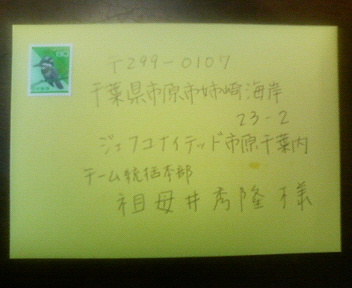 〒299-0107
千葉県市原市姉崎海岸
23-2
ジェフユナイテッド市原千葉内
チーム統括本部
祖母井秀隆様